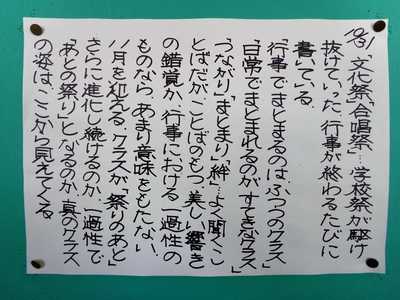 10/31 文化祭「合唱祭」…学校祭が駆け
抜けていった。行事が終わるたびに
書いている。
「行事でまとまるのは、ふつうのクラス」
「日常でまとまれるのが、すてきなクラス」
「つながり」「まとまり」「絆」…よく聞くこ
とばだが、ことばのもつ美しい響き
の錯覚か、行事における一過性の
ものなら、あまり意味をもたない。
11月を迎える。クラスが「祭りのあと」
さらに進化し続けるのか、一過性で
「あとの祭り」となるのか、真のクラス
の姿は、ここから見えてくる。